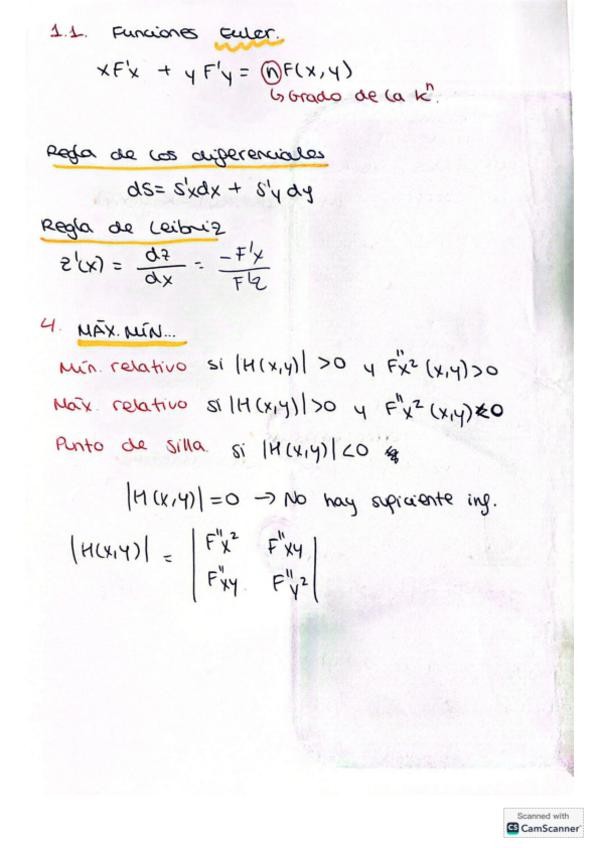 1.1. Funciones Euler.
xF'x + yF'y = nF(x,y)
↳ Grado de la kⁿ.
Regla de los diferenciales
dS = S'x dx + S'y dy
Regla de Leibniz
z'(x) = dz/dx = -F'x/F'z
4. MÁX. MÍN...
Mín. relativo si |H(x,y)| >0 y F''x² (x,y)>0
Máx. relativo si |H(x,y)|>0 y F''x² (x,y)<0
Punto de silla si |H(x,y)|<0
|H(x,y)|=0 → No hay suficiente inf.
|H(x,y)| = | F''x² F''xy |
| F''xy F''y² |
Scanned with
CS CamScanner